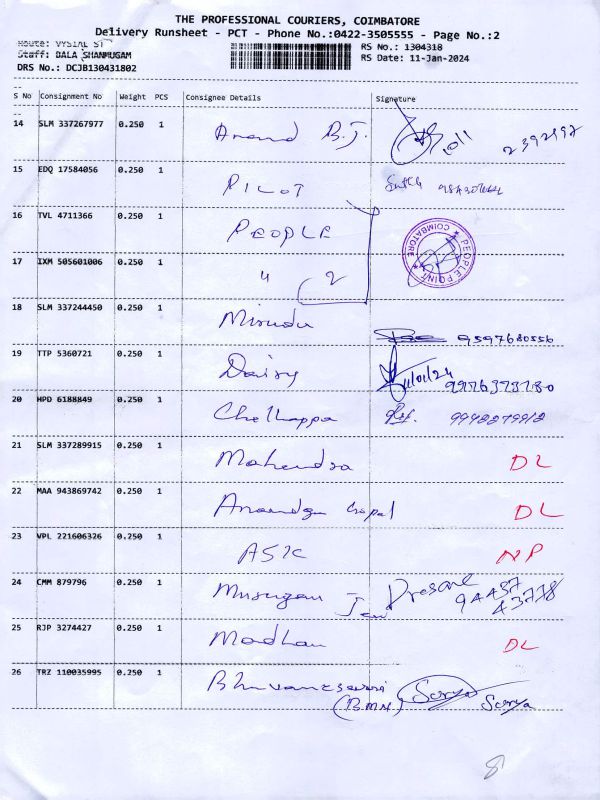 THE PROFESSIONAL COURIERS, COIMBATORE
Delivery Runsheet - PCT - Phone No.:0422-3505555 - Page No.:2
Route: VYSIAL ST
RS No.: 1304318
Staff: BALA SHANMUGAM
RS Date: 11-Jan-2024
DRS No.: DCJB130431802
S No Consignment No Weight PCS Consignee Details Signature
14 SLM 337267977 0.250 1 Anand B.J. 2392192
15 EDQ 17584056 0.250 1 PILOT
16 TVL 4711366 0.250 1 PEOPLE
PEOPLE POINT COIMBATORE
17 IXM 505601006 0.250 1 " 2
18 SLM 337244450 0.250 1 Mirudu 9597680556
19 TTP 5360721 0.250 1 Daisy 11/01/24 9976373780
20 HPD 6188849 0.250 1 Chellappa
21 SLM 337289915 0.250 1 Mahendra DL
22 MAA 943869742 0.250 1 Anandha Gopal DL
23 VPL 221606326 0.250 1 ASK NP
24 CMM 879796 0.250 1 Murugan 94437 43738
25 RJP 3274427 0.250 1 Madhan DL
26 TRZ 110035995 0.250 1 Bhuvaneswari Surya
(BMN) Surya
8